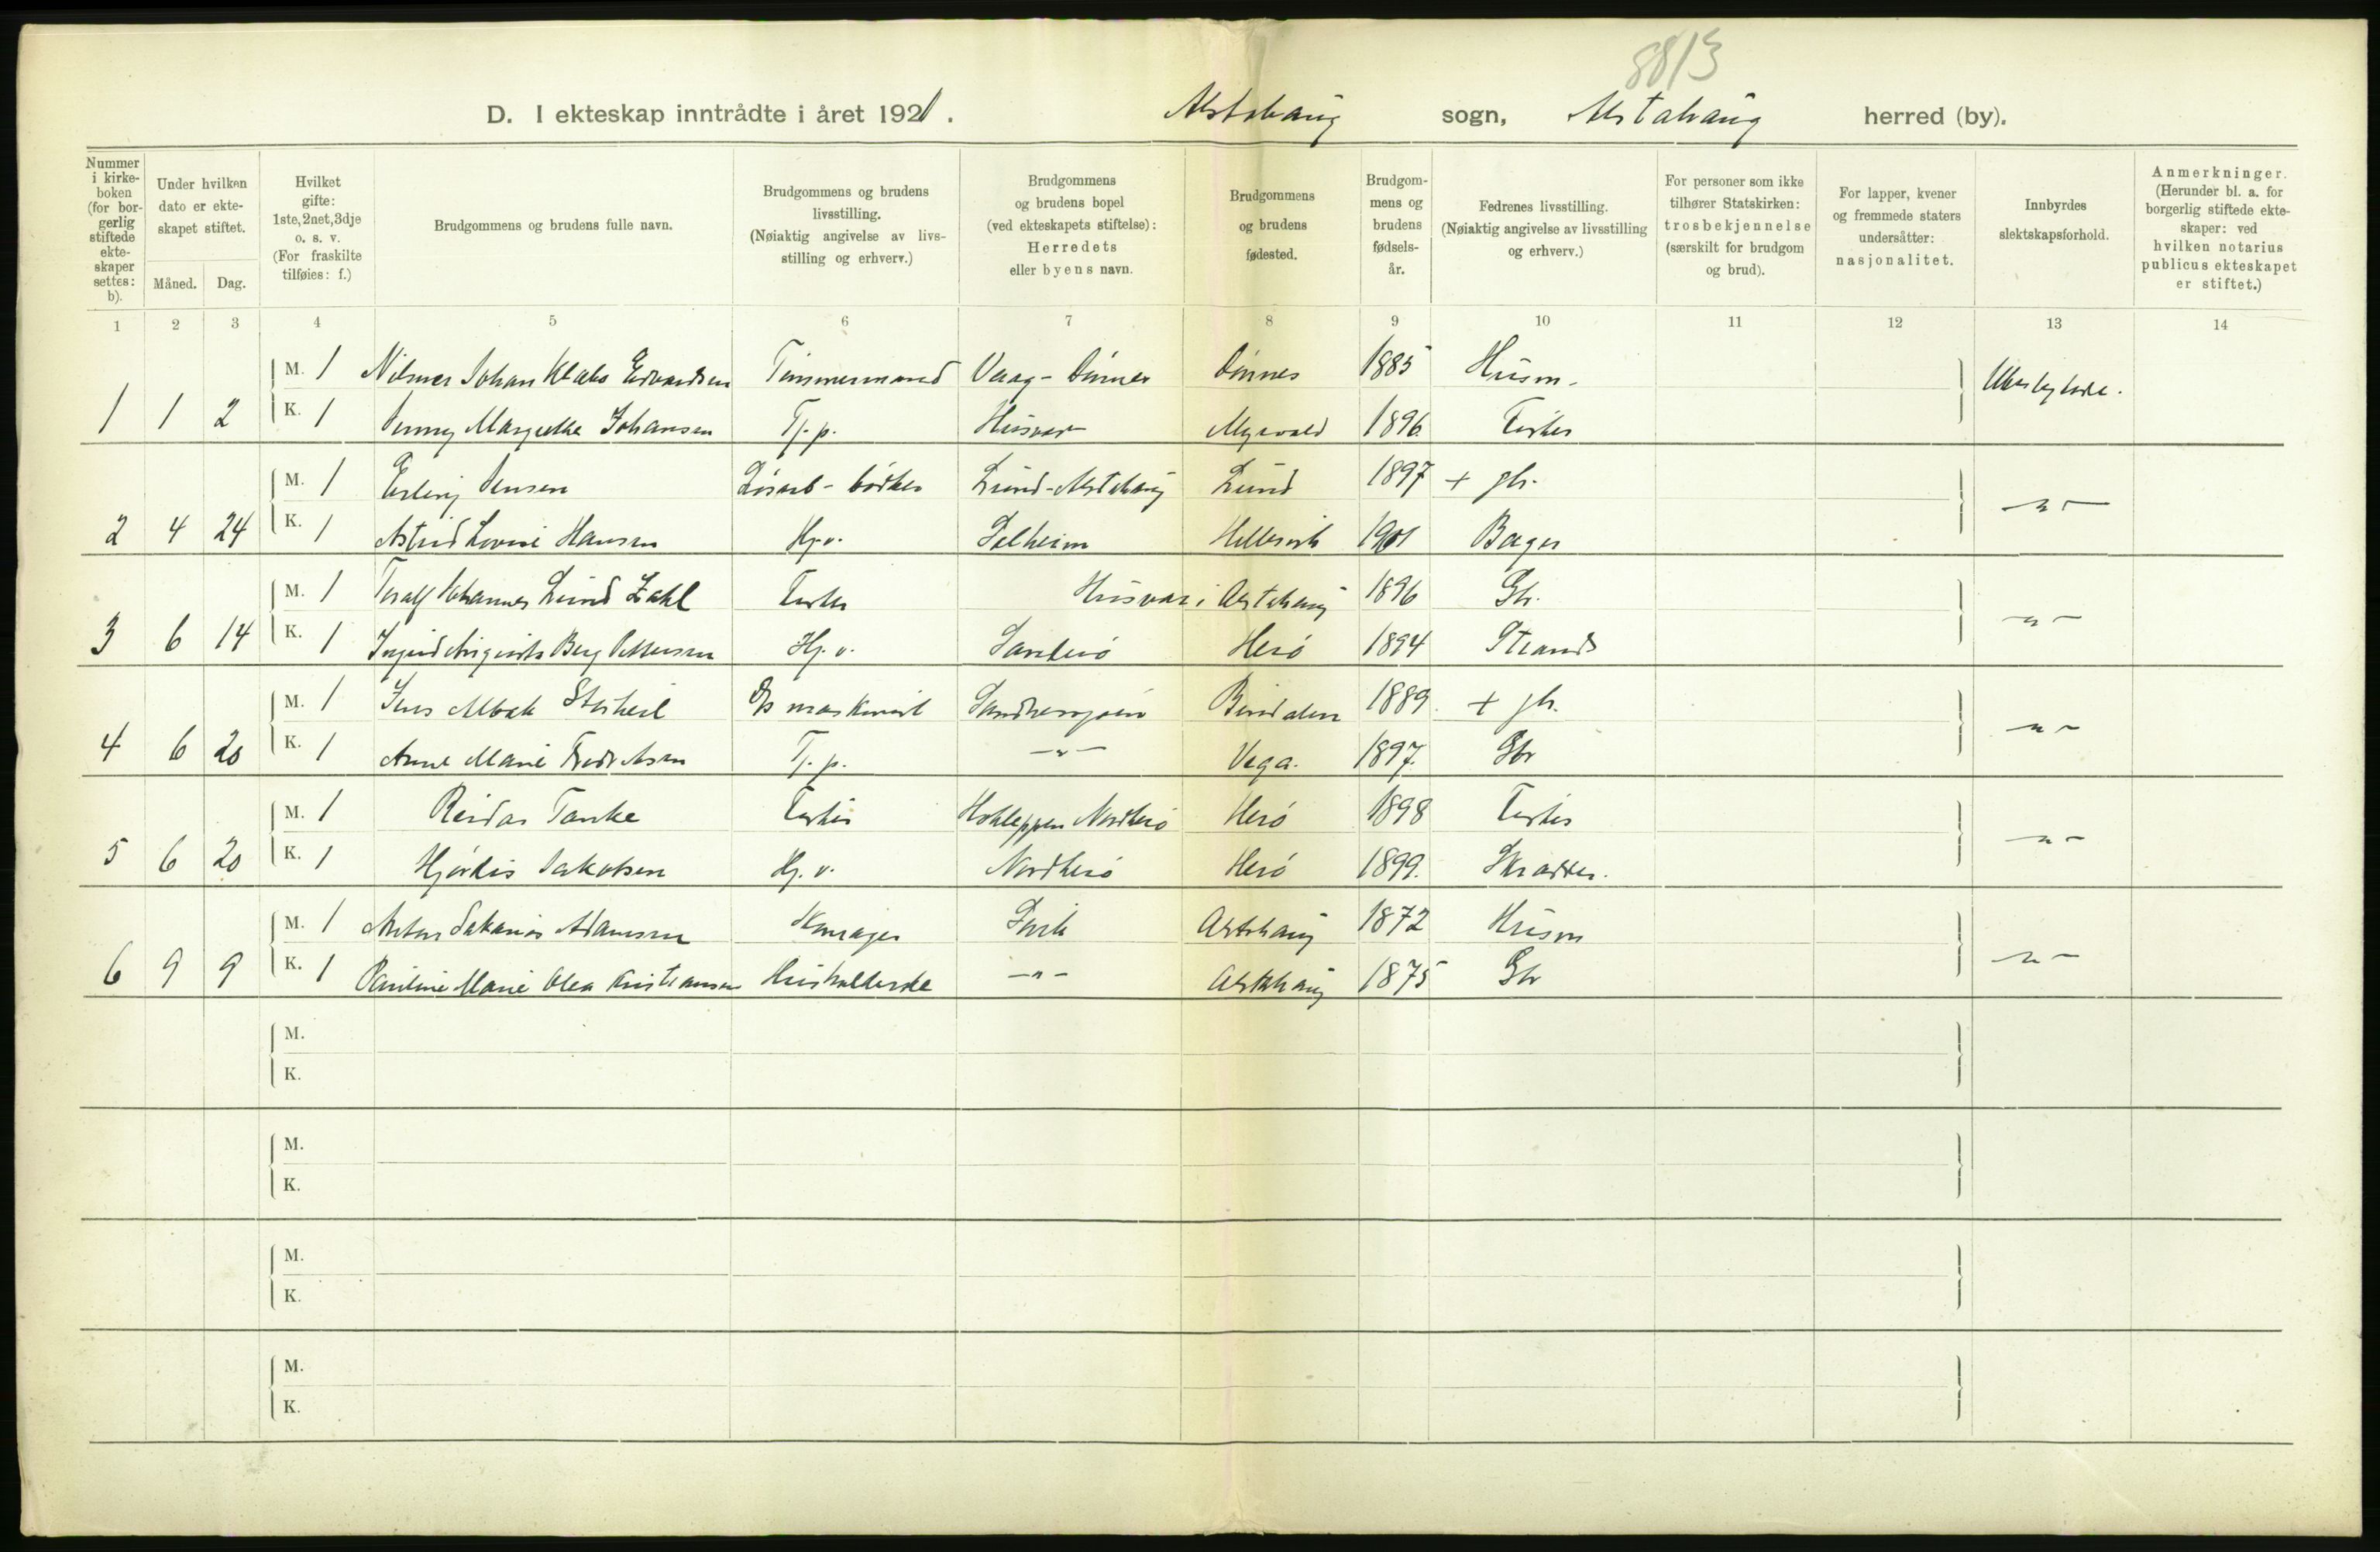 8813
D. I ekteskap inntrådte i året 1921. Alstahaug sogn, Alstahaug herred (by).
Nummer i kirkeboken (for borgerlig stiftede ekteskaper settes: b).
Under hvilken dato er ekteskapet stiftet.
Måned. Dag.
Hvilket gifte: 1ste, 2net, 3dje o. s. v. (For fraskilte tilføies: f.)
Brudgommens og brudens fulle navn.
Brudgommens og brudens livsstilling. (Nøiaktig angivelse av livsstilling og erhverv.)
Brudgommens og brudens bopel (ved ekteskapets stiftelse): Herredets eller byens navn.
Brudgommens og brudens fødested.
Brudgommens og brudens fødselsår.
Fedrenes livsstilling. (Nøiaktig angivelse av livsstilling og erhverv.)
For personer som ikke tilhører Statskirken: trosbekjennelse (særskilt for brudgom og brud).
For lapper, kvener og fremmede staters undersåtter: nasjonalitet.
Innbyrdes slektskapsforhold.
Anmerkninger. (Herunder bl. a. for borgerlig stiftede ekteskaper: ved hvilken notarius publicus ekteskapet er stiftet.)
1 2 3 4 5 6 7 8 9 10 11 12 13 14
M. 1 Johan Edvardsen Tømmermand Dønnes 1885 Husm. Ubeslektede.
1 1 2 K. 1 Jenny Margrethe Johansen Tj. p. Husvær 1896 Fisker
M. 1 Erling Jensen Løsarb - bødker Lund - Alstahaug Lund 1897 + gbr. -"-
2 4 24 K. 1 Astrid Hansen Hj. v. Solheim 1901 Bager
M. 1 Toralf Johannes Lund Zahl Fisker Husvær i Alstahaug 1896 Gbr. -"-
3 6 14 K. 1 Berg Pettersen Hj. v. Sørherø Herø 1894 Strands
M. 1 Jens maskinist Sandnessjøen Bindalen 1889 + gbr. -"-
4 6 20 K. 1 Anne Marie Fredriksen Tj. p. -"- Vega. 1897. Gbr
M. 1 Reidar Tanke Fisker Nordherø Herø 1898 Fisker -"-
5 6 20 K. 1 Hjørdis Jakobsen Hj. v. Nordherø Herø 1899. Skrædder.
M. 1 Anton Sakarias Adamsen Alstahaug 1872 Husm -"-
6 9 9 K. 1 Pauline Marie Olea Kristiansen Husholderske -"- Alstahaug 1875 Gbr
M.
K.
M.
K.
M.
K.
M.
K.